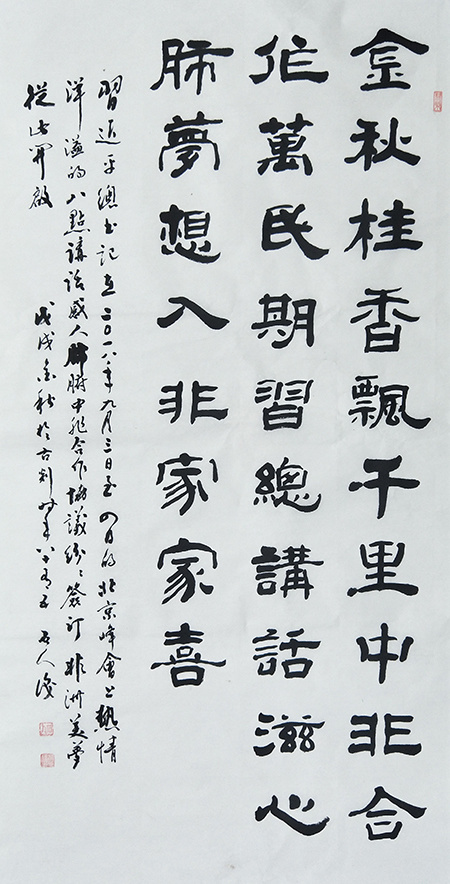 金秋桂香飄千里中非合
作萬民期習總講話滋心
肺夢想入非家家喜
習近平總書記在二〇一八年九月三日至四日的北京峰會上熱情
洋溢的八點講話感人肺腑中非合作協議紛〻簽订非洲美夢
從此開啟
戊戌金秋於古荊时年八十有五